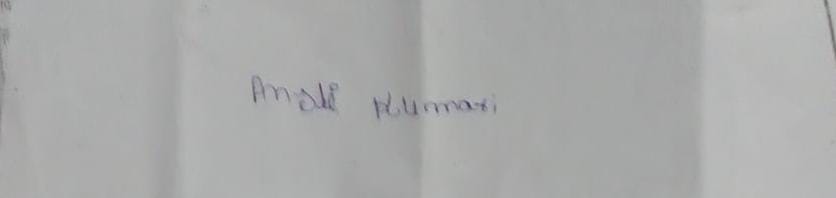 Anjli Kumari